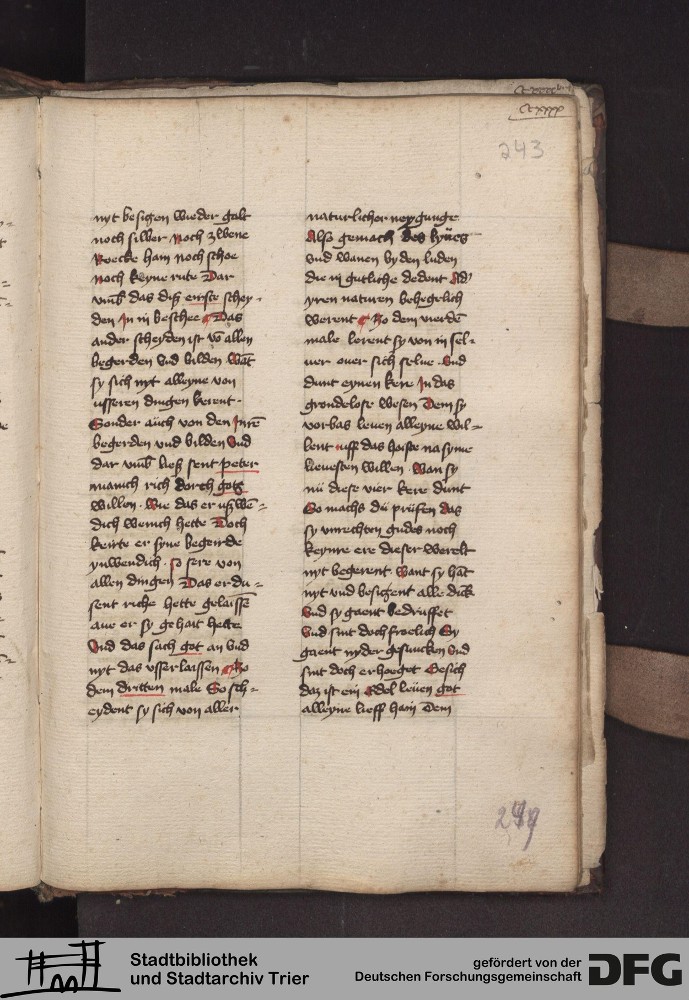 ccxxx
243
nyt besitzen wieder golt
noch silber noch zwene
Roecke ham noch schoe
noch keyne rute Dar
vmb das diß eirste schey-
den In in beschee Das
ander scheyden ist vō allen
begerden vnd bilden Wāt
sy sich nyt alleyne von
usseren dingen kerent.
Sonder auch von den Inrē
begerden vnd bilden Vnd
dar vmb ließ sent peter
manich rich dorch gotz
willen. Wie das er vßwē=
dich wenich hette Doch
keirte er syne begerde
ynwendich. so sere von
allen dingen Das er du=
sent riche hette gelaissē
aue er sy gehait hette
Vnd das sach got an vnd
nyt das vsserlaissen Zo
dem dritten male So sch=
eydent sy sich von aller
naturlicher neygunge
Also gemach des lyues
vnd wanen by den luden
die in gutliche dedent Ad'
yren naturen behegelich
werent Zo dem vierdē
male lerent sy von in sel-
uer ouer sich selue. Vnd
dunt eynen kere In das
grondelose wesen Dem sy
vorbas leuen alleyne wil=
lent uff das hoiste na syme
lieuesten willen. Wan sy
nū diese vier kere dunt
So machs dū prüfen das
sy vnrechten gudes noch
keynre ere dieser werelt
nyt begerent. Want sy hāt
nyt vnd besitzent alle dick
Vnd sy gaent bedruffet
Vnd sint doch froelich Sy
gaent nyder gesuncken vnd
sint doch erhoeget Besich
daz ist ein Edel leuen got
alleyne lieff hain Dem
249
Stadtbibliothek
und Stadtarchiv Trier
gefördert von der
Deutschen Forschungsgemeinschaft
DFG